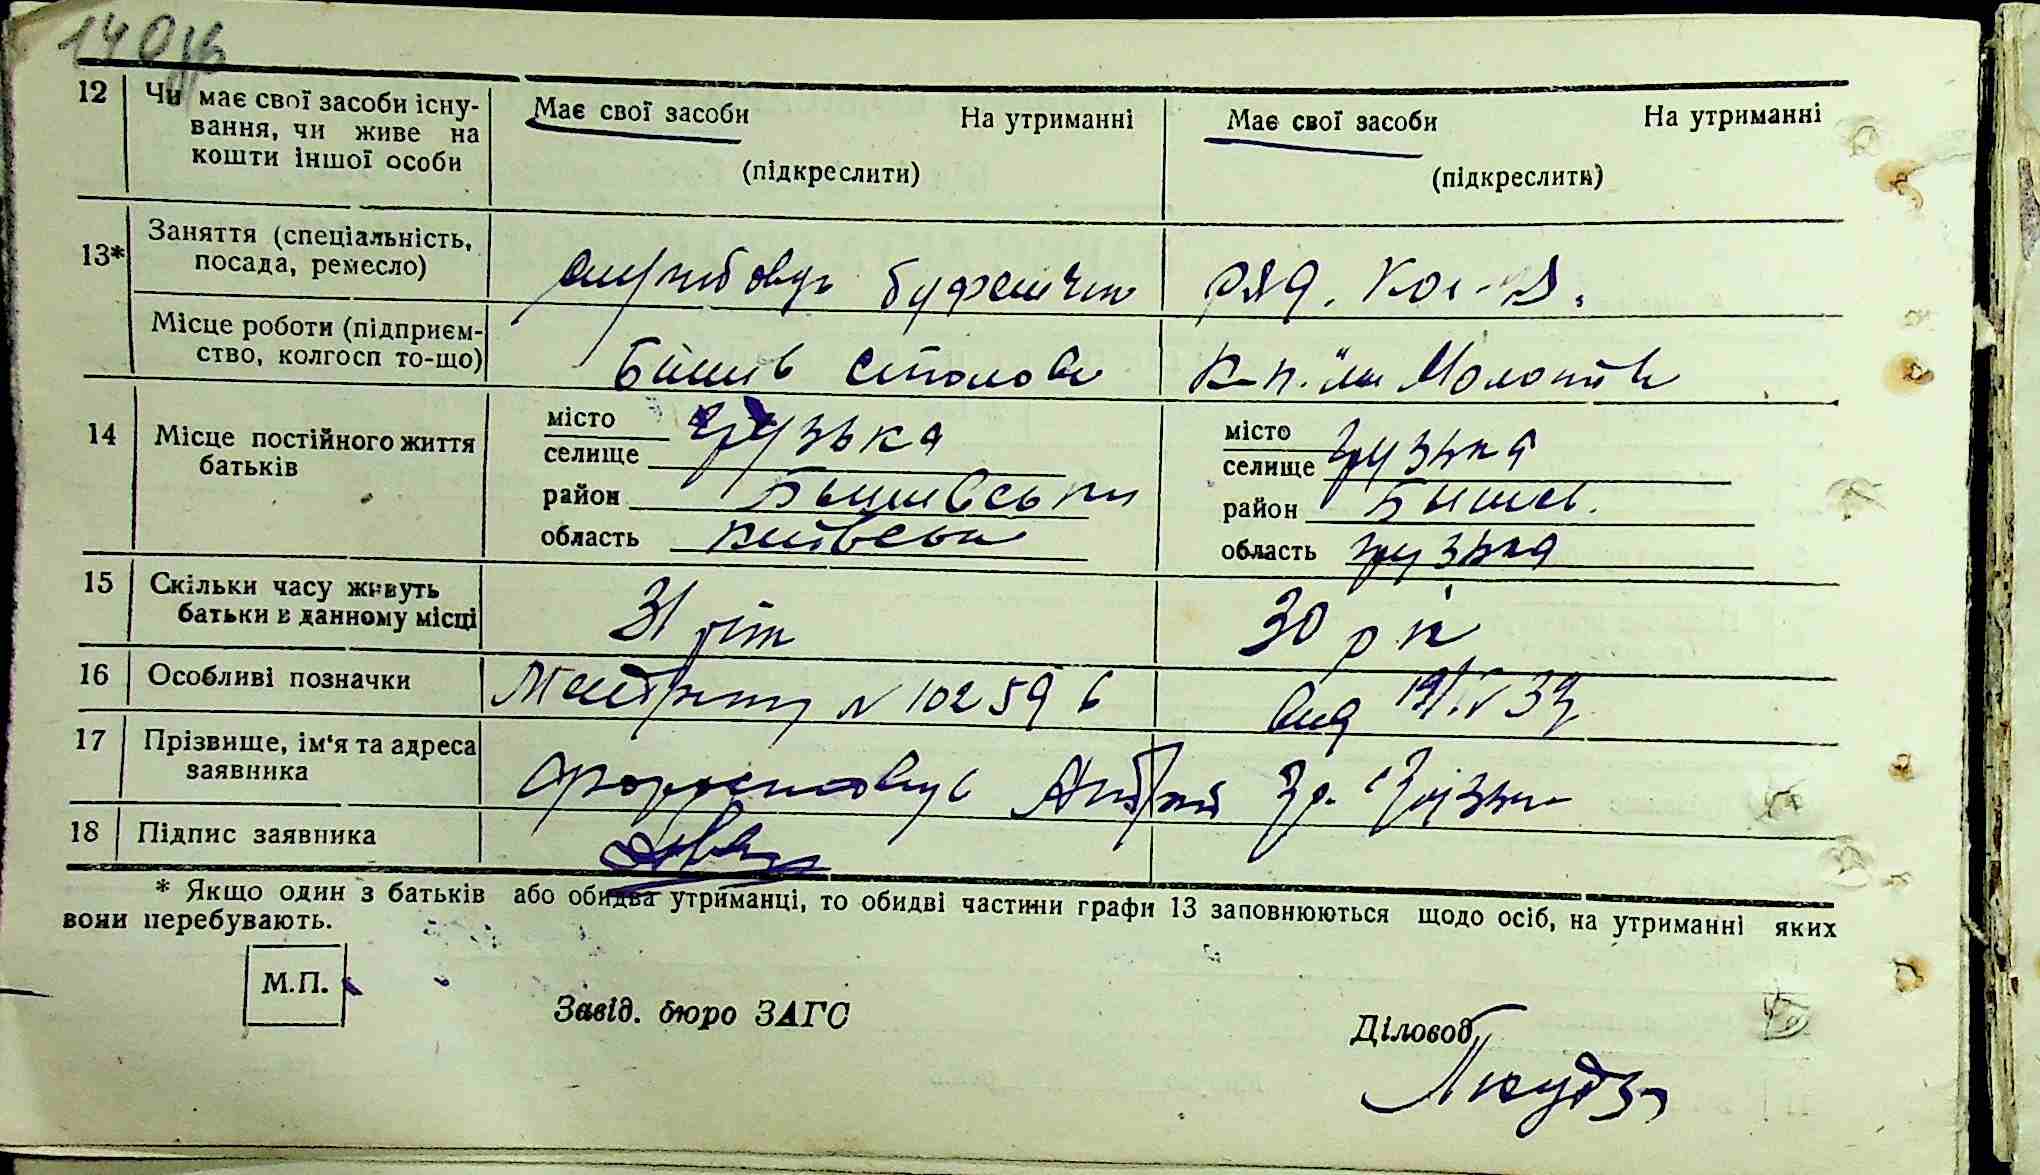 140зв
12 Чи має свої засоби існу-
вання, чи живе на
кошти іншої особи
Має свої засоби На утриманні
(підкреслити)
Має свої засоби На утриманні
(підкреслити)
13* Заняття (спеціальність,
посада, ремесло)
службовець буфетчик
ряд. кол-к.
Місце роботи (підприєм-
ство, колгосп то-що)
Бишів столова
к-п. ім Молотова
14 Місце постійного життя
батьків
місто
селище Грузька
район Бишивськи
область Київська
місто
селище Грузька
район Бишів.
область Грузька
15 Скільки часу живуть
батьки в данному місці
31 рік
30 рік
16 Особливі позначки
N 102596
від 19/IV 39
17 Прізвище, ім'я та адреса
заявника
Андрій Грузька
18 Підпис заявника
* Якщо один з батьків або обидва утриманці, то обидві частини графи 13 заповнюються щодо осіб, на утриманні яких
вони перебувають.
М.П.
Завід. бюро ЗАГС
Діловод